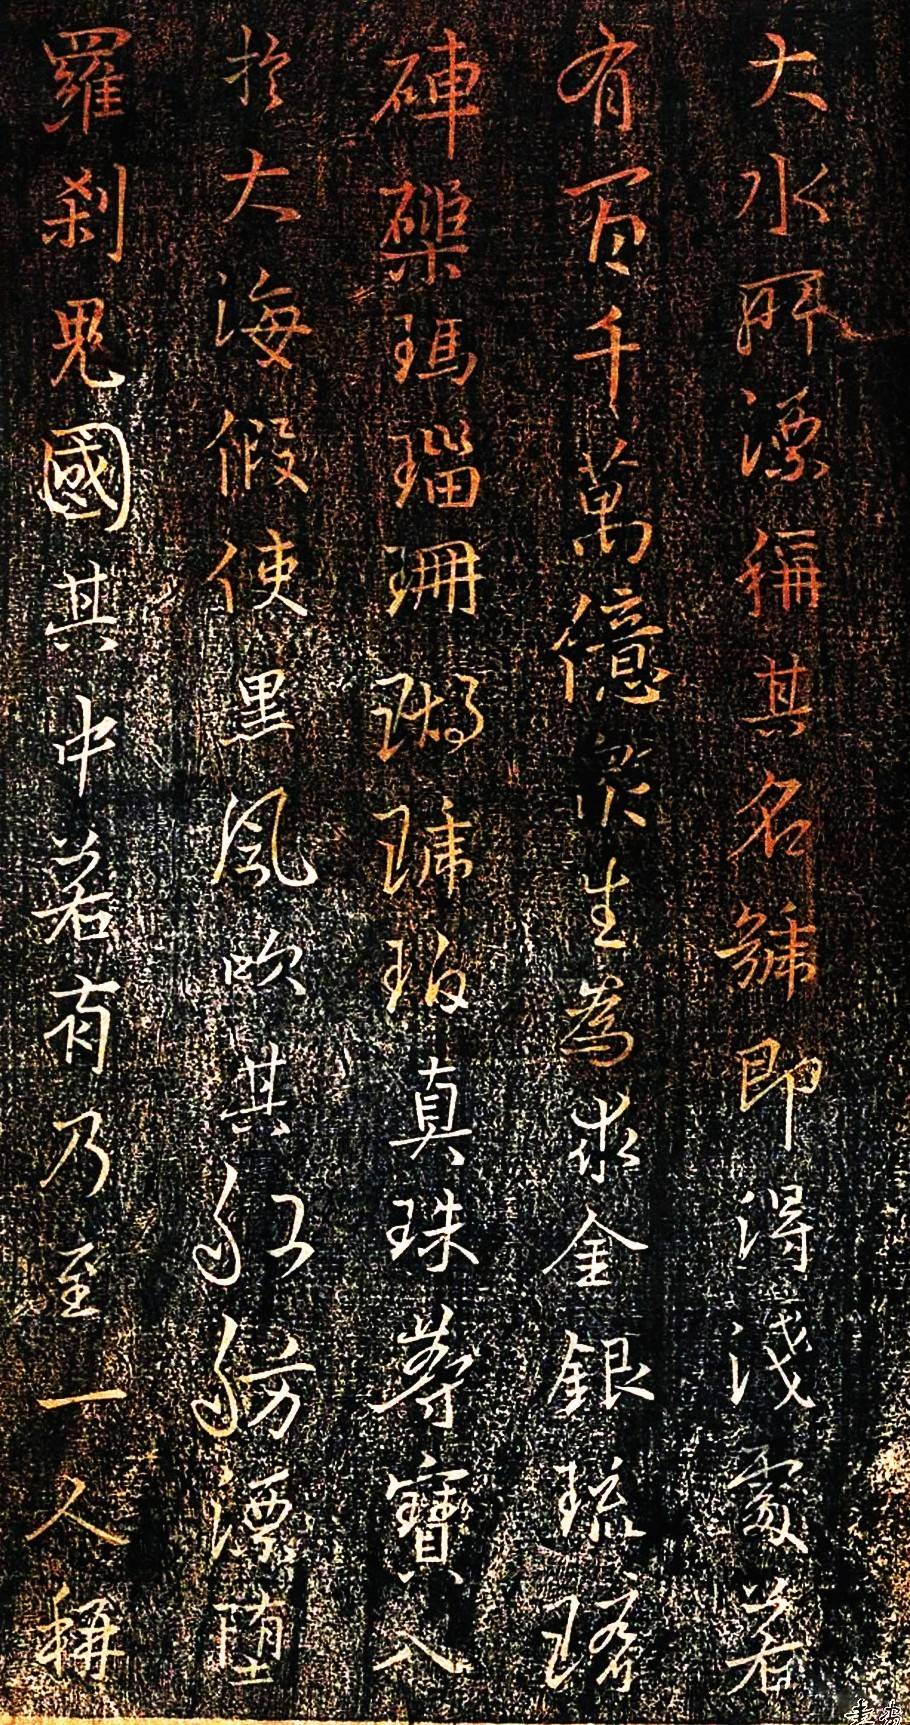 大水所漂稱其名號即得淺處若
有百千萬億眾生為求金銀琉璃
硨磲瑪瑙珊瑚琥珀真珠等寶入
於大海假使黑風吹其船舫漂墮
羅剎鬼國其中若有乃至一人稱